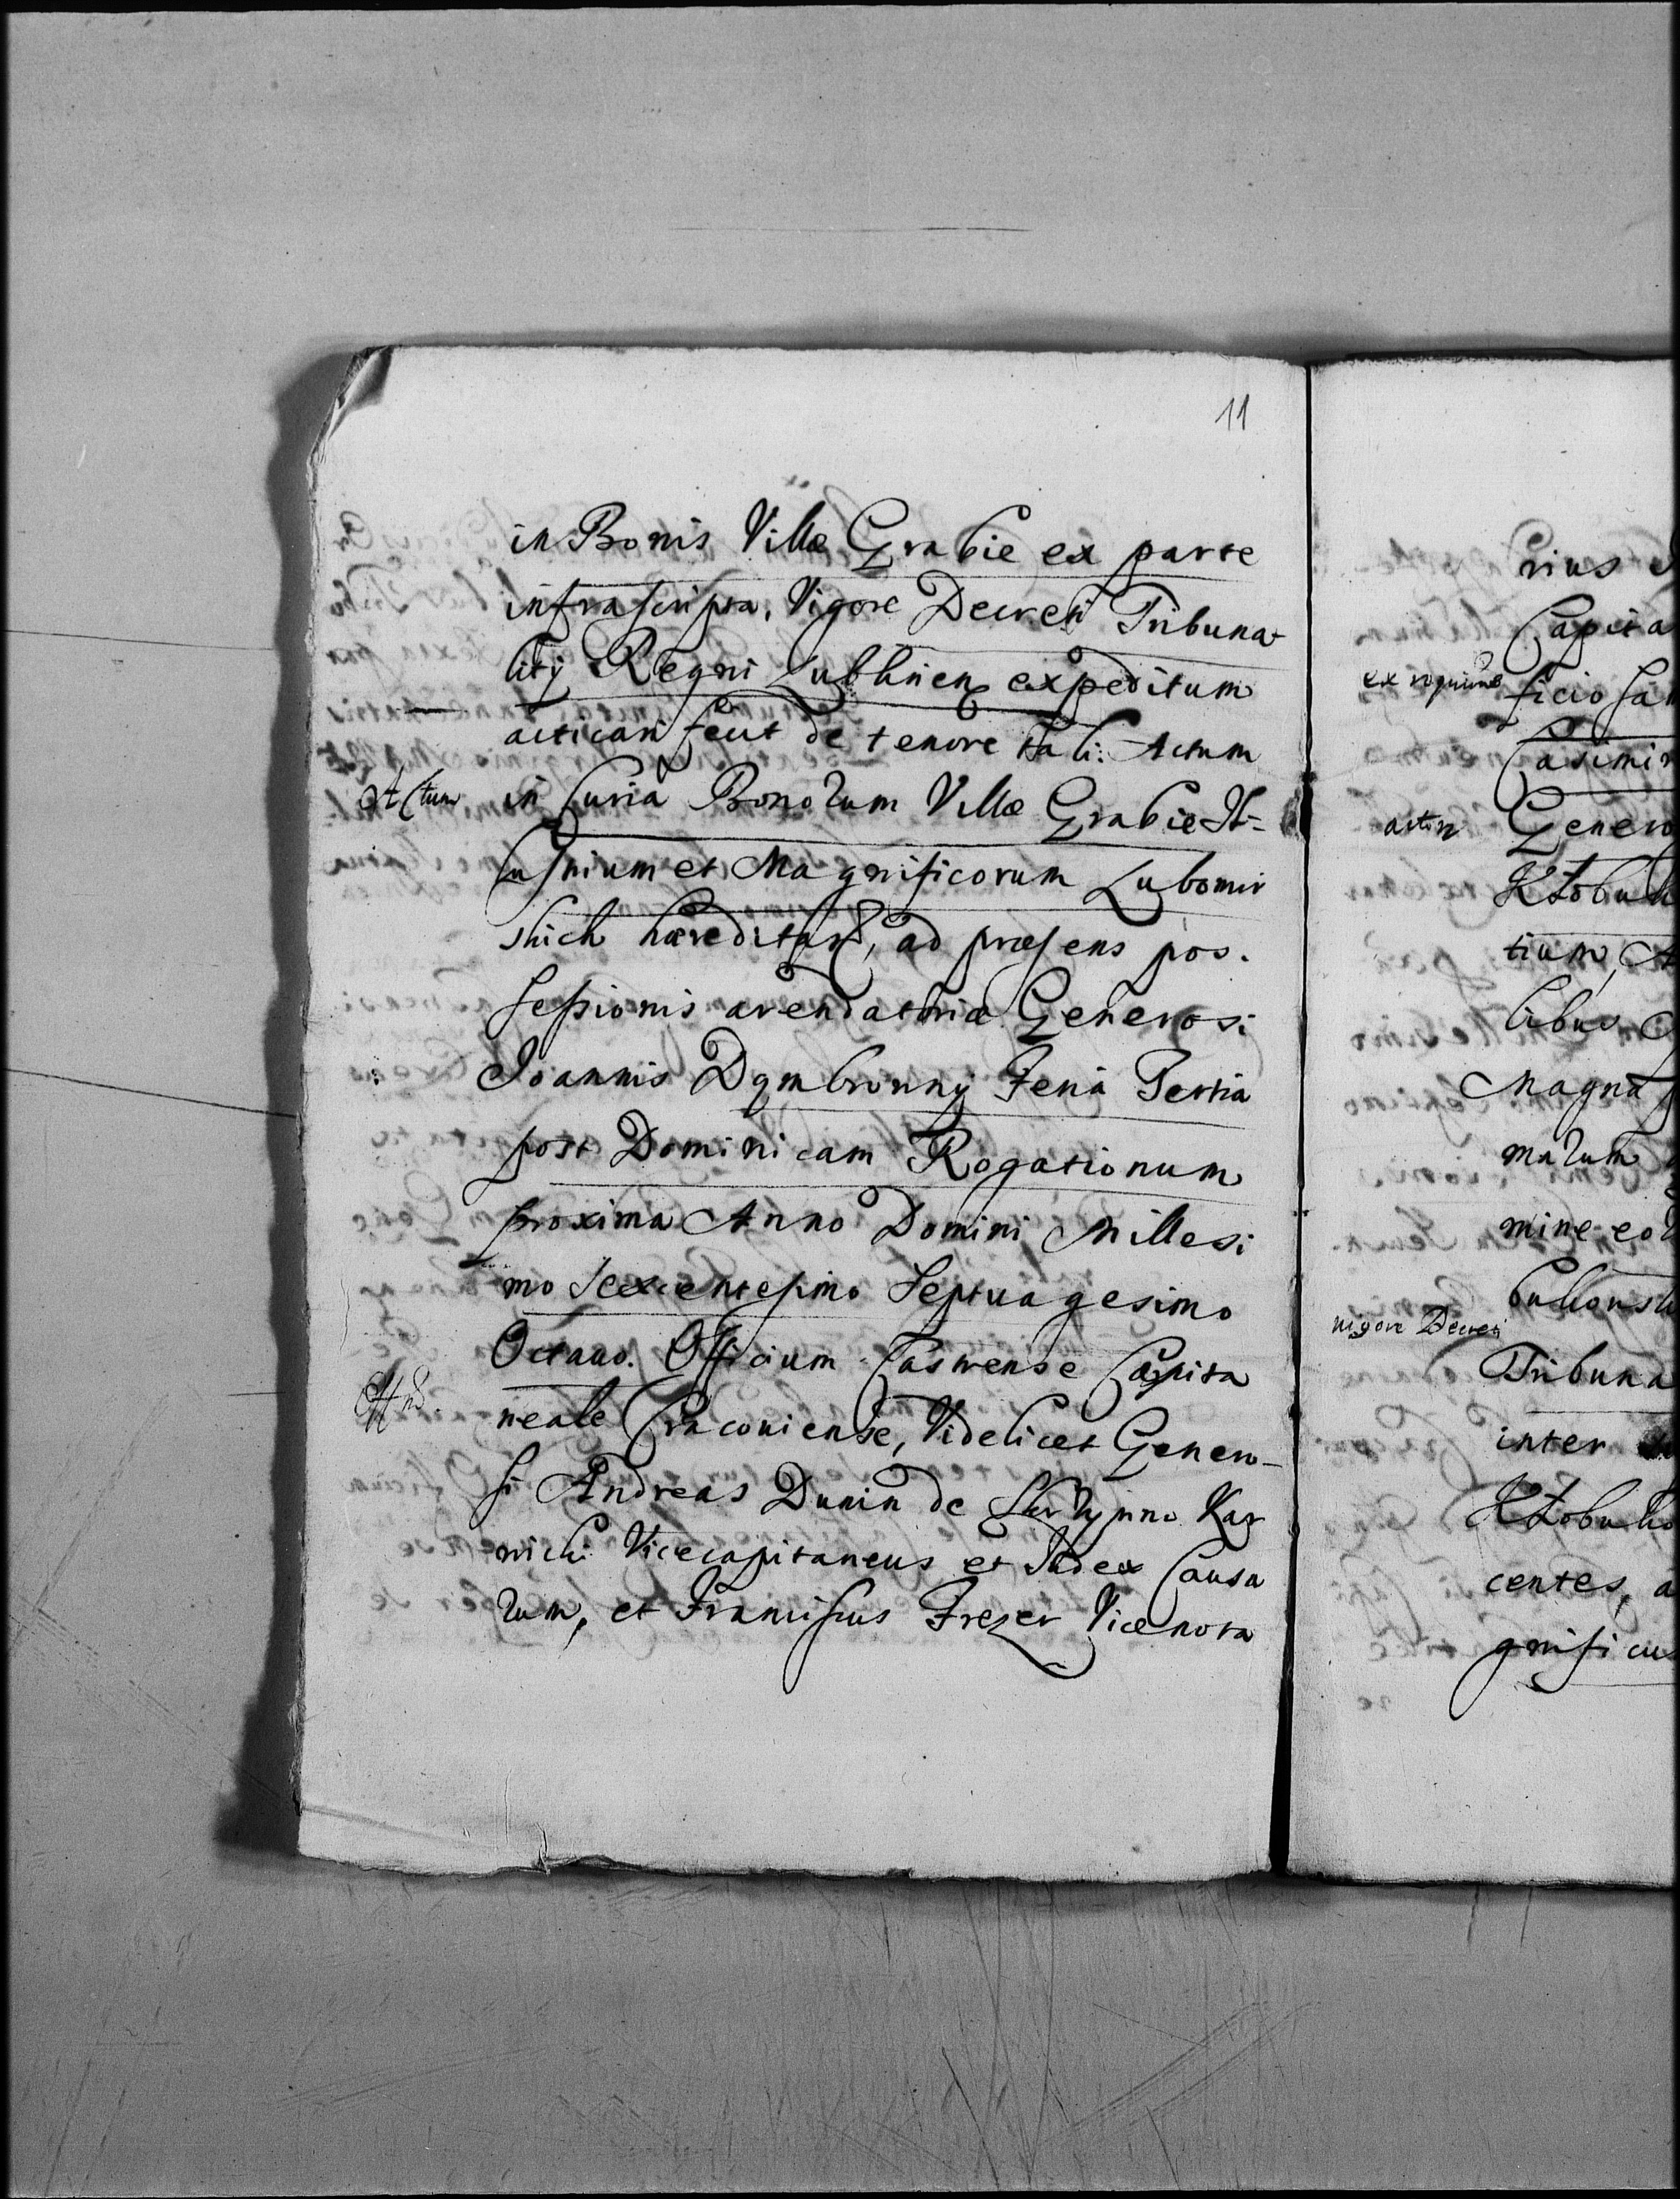 11
in Bonis Villæ Grabie ex parte
infrascripta, Vigore Decreti Tribuna
litij Regni Lublinen expeditum
acticari fecit de tenore tali: Actum
Actum
in Curia Bonorum Villæ Grabie Il=
lustrium et Magnificorum Lubomir
skich hæreditar, ad præsens pos.
sessionis arendatoriæ Generosi
Joannis Dąmbronny Feria Tertia
post Dominicam Rogationum
proxima Anno Domini Millesi
mo Sexcentesimo Septuagesimo
Octauo. Officium Castrense Capita
neale Cracouiense, Videlicet Genero-
si Andreas Dunin de Skrzynno Kar
nicki Vicecapitaneus et Iudex Causa
rum, et Franciscus Frezer Vicenota
rius
Capita
ficio
Casimir
actin
Genero
Kłobuk
tium,
libus
Magna
marum
mine eo
bukowsk
vigore Decreti
Tribuna
inter
Kłobuko
centes, a
gnificu